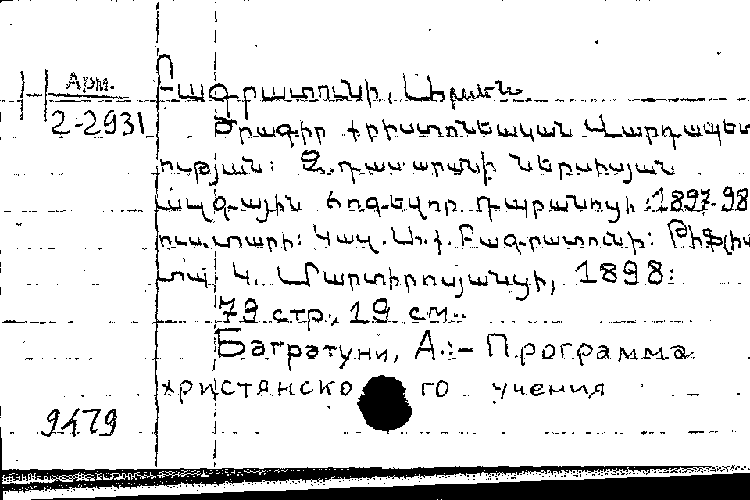 Арм.
Բագրատունի, Արսեն
2-2931
Ծրագիր քրիստոնեական վարդապետ
ության: Զ. դասարանի ներսիսյան
ազգային հոգևոր դպրանոցի: 1897-98
ուս. տարի: Կազ. Ա. ք. Բագրատունի: Թիֆլիս
տպ. Կ. Մարտիրոսյանցի, 1898:
79 стр., 19 см.
Багратуни, А.:- Программа
христианского учения
9479